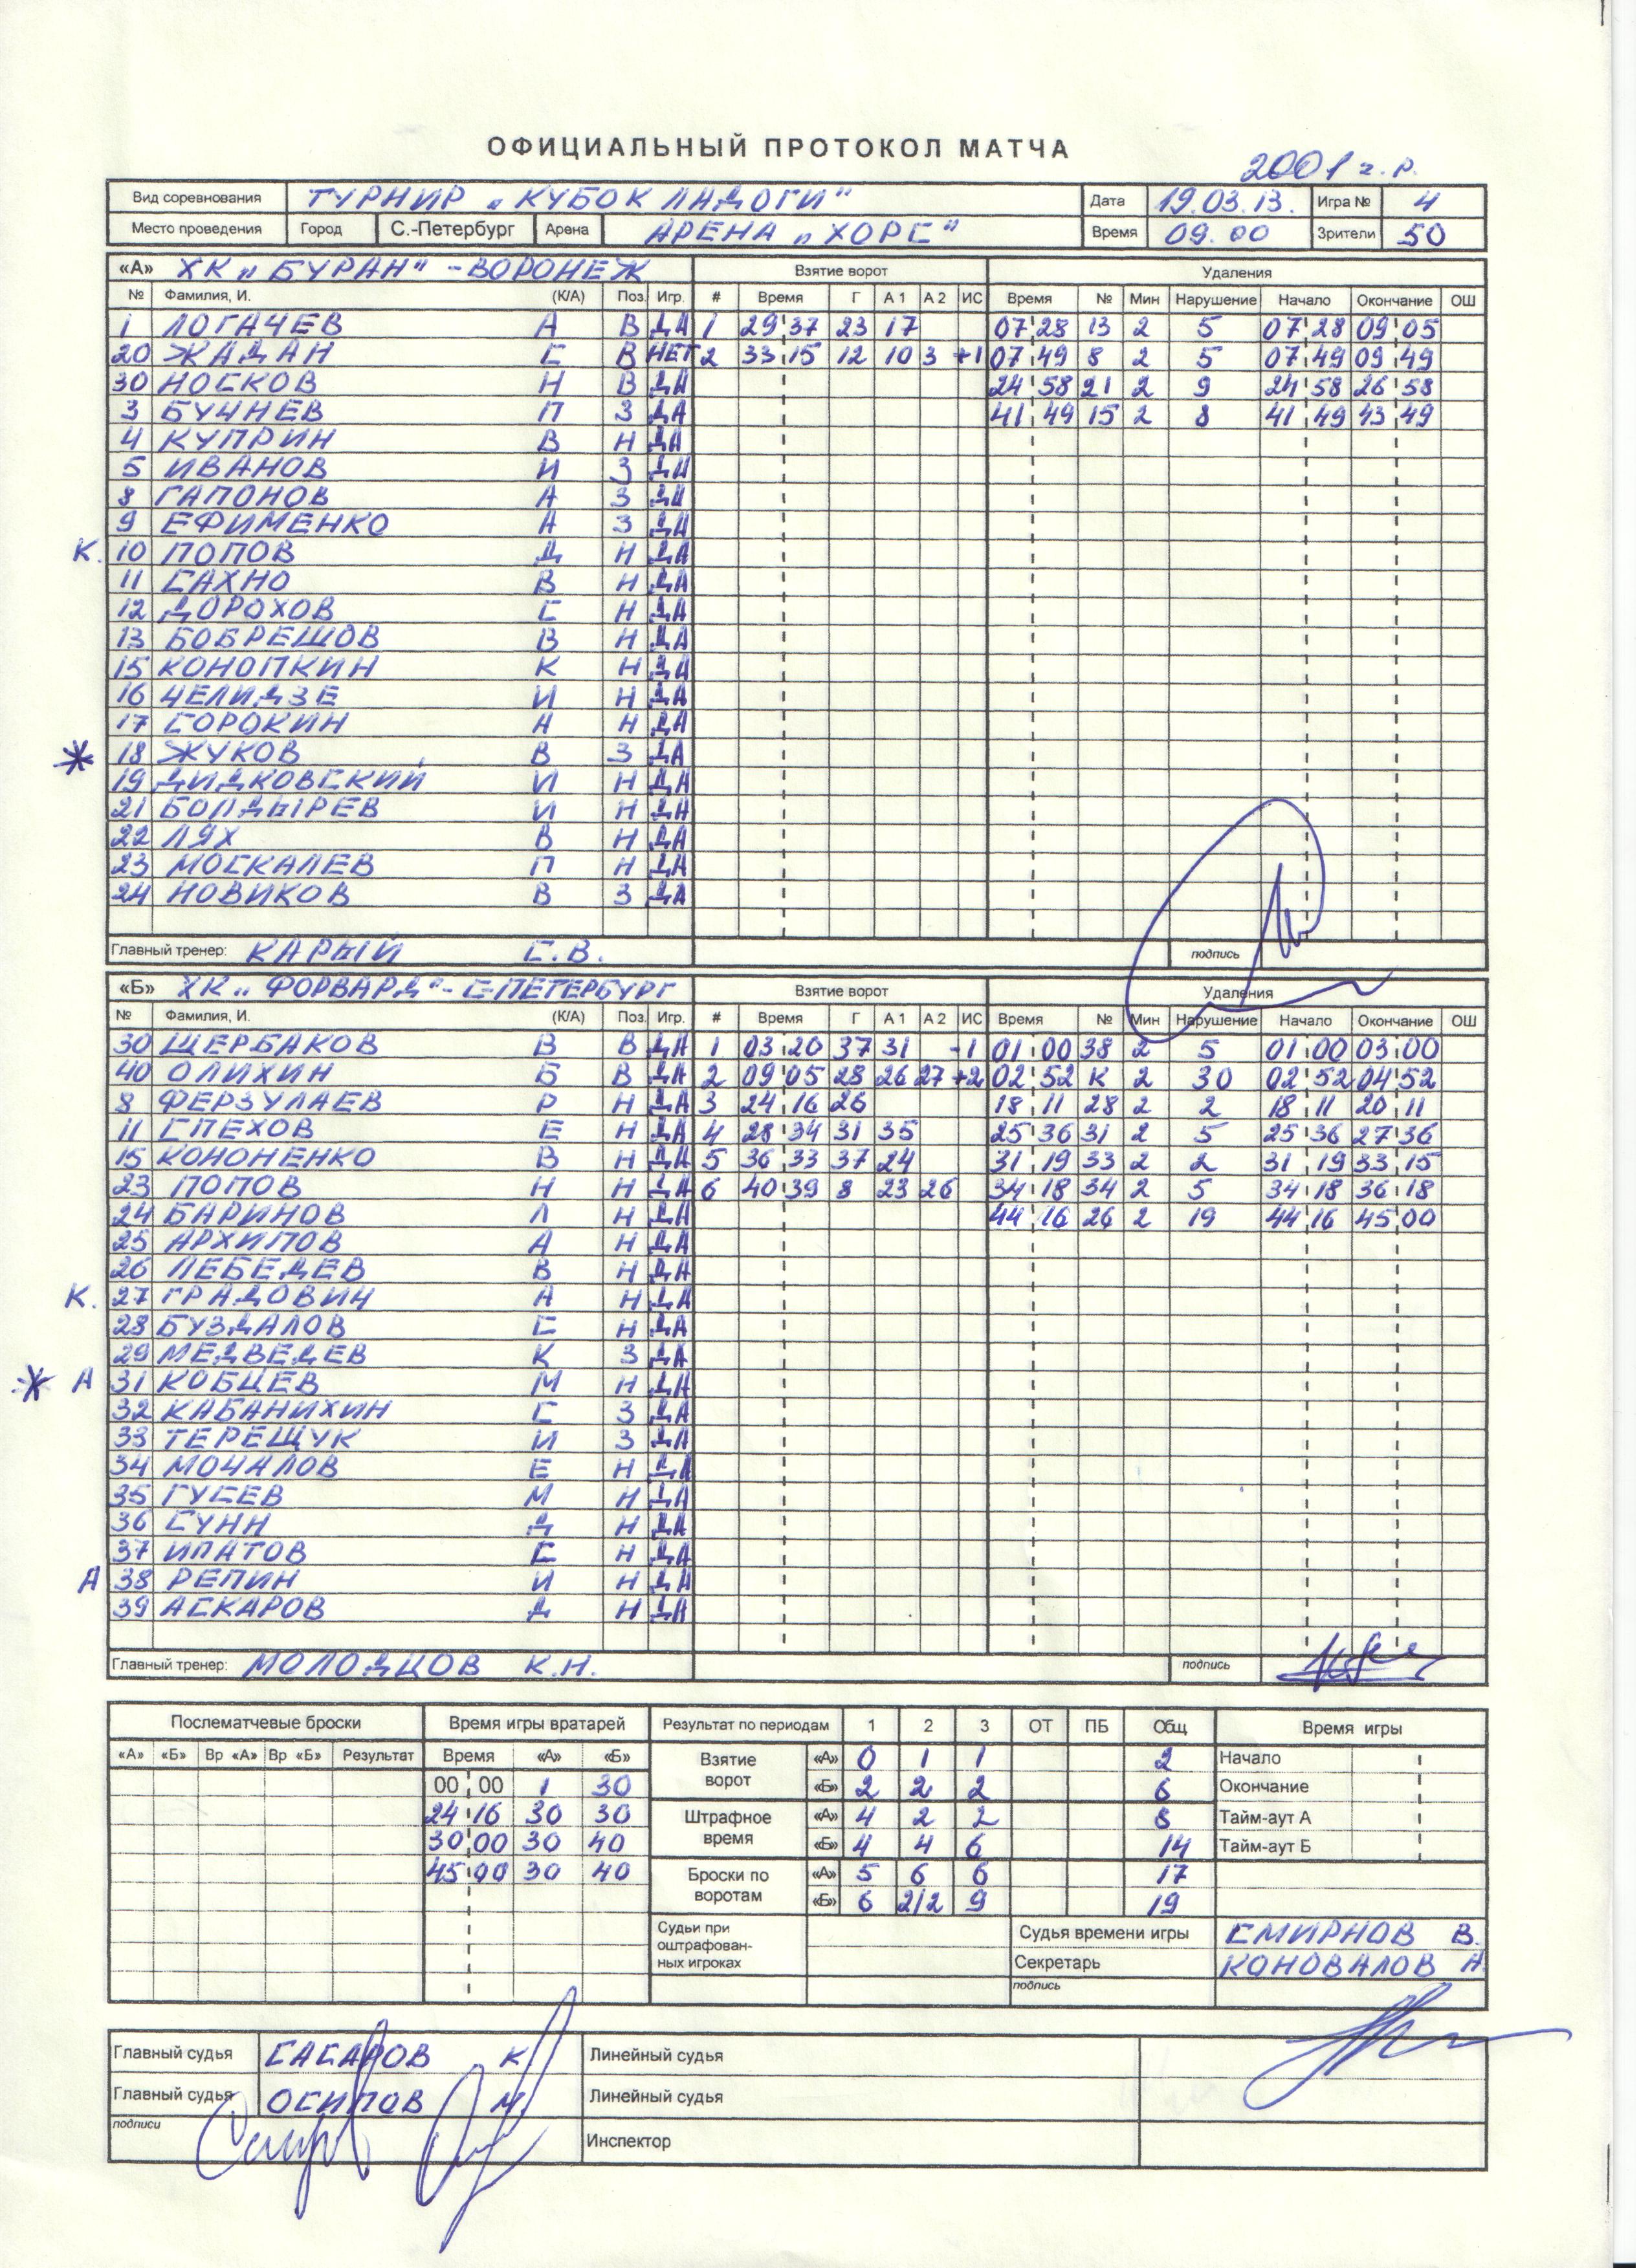 ОФИЦИАЛЬНЫЙ ПРОТОКОЛ МАТЧА
2001 г.р.
Вид соревнования ТУРНИР „КУБОК ЛАДОГИ" Дата 19.03.13. Игра № 4
Место проведения Город С.-Петербург Арена АРЕНА „ХОРС" Время 09.00 Зрители 50
«А» ХК „БУРАН" - ВОРОНЕЖ Взятие ворот Удаления
№ Фамилия, И. (К/А) Поз. Игр. # Время Г А 1 А 2 ИС Время № Мин Нарушение Начало Окончание ОШ
1 ЛОГАЧЕВ А В ДА 1 29 37 23 17 07 28 13 2 5 07 28 09 05
20 ЖАДАН С В НЕТ 2 33 15 12 10 3 +1 07 49 8 2 5 07 49 09 49
30 НОСКОВ Н В ДА 24 58 21 2 9 24 58 26 58
3 БУЧНЕВ П З ДА 41 49 15 2 8 41 49 43 49
4 КУПРИН В Н ДА
5 ИВАНОВ И З ДА
8 ГАПОНОВ А З ДА
9 ЕФИМЕНКО А З ДА
К. 10 ПОПОВ Д Н ДА
11 САХНО В Н ДА
12 ДОРОХОВ С Н ДА
13 БОБРЕШОВ В Н ДА
15 КОНОПКИН К Н ДА
16 ЧЕЛИДЗЕ И Н ДА
17 СОРОКИН А Н ДА
* 18 ЖУКОВ В З ДА
19 ДИДКОВСКИЙ И Н ДА
21 БОЛДЫРЕВ И Н ДА
22 ЛЯХ В Н ДА
23 МОСКАЛЕВ П Н ДА
24 НОВИКОВ В З ДА
Главный тренер: КАРЫЙ С.В. подпись
«Б» ХК „ФОРВАРД" - С-ПЕТЕРБУРГ Взятие ворот Удаления
№ Фамилия, И. (К/А) Поз. Игр. # Время Г А 1 А 2 ИС Время № Мин Нарушение Начало Окончание ОШ
30 ЩЕРБАКОВ В В ДА 1 03 20 37 31 -1 01 00 38 2 5 01 00 03 00
40 ОЛИХИН Б В ДА 2 09 05 28 26 27 +2 02 52 К 2 30 02 52 04 52
8 ФЕРЗУЛАЕВ Р Н ДА 3 24 16 26 18 11 28 2 2 18 11 20 11
11 СПЕХОВ Е Н ДА 4 28 34 31 35 25 36 31 2 5 25 36 27 36
15 КОНОНЕНКО В Н ДА 5 36 33 37 24 31 19 33 2 2 31 19 33 15
23 ПОПОВ Н Н ДА 6 40 39 8 23 26 34 18 34 2 5 34 18 36 18
24 БАРИНОВ Л Н ДА 44 16 26 2 19 44 16 45 00
25 АРХИПОВ А Н ДА
26 ЛЕБЕДЕВ В Н ДА
К. 27 ГРАДОВИЧ А Н ДА
28 БУЗДАЛОВ С Н ДА
29 МЕДВЕДЕВ К З ДА
* А 31 КОБЦЕВ М Н ДА
32 КАБАНИХИН С З ДА
33 ТЕРЕЩУК И З ДА
34 МОЧАЛОВ Е Н ДА
35 ГУСЕВ М Н ДА
36 СУНН Д Н ДА
37 ИПАТОВ С Н ДА
А 38 РЕПИН И Н ДА
39 АСКАРОВ Д Н ДА
Главный тренер: МОЛОДЦОВ К.Н. подпись
Послематчевые броски Время игры вратарей Результат по периодам 1 2 3 ОТ ПБ Общ Время игры
«А» «Б» Вр «А» Вр «Б» Результат Время «А» «Б» Взятие ворот «А» 0 1 1 2 Начало
00 00 1 30 «Б» 2 2 2 6 Окончание
24 16 30 30 Штрафное время «А» 4 2 2 8 Тайм-аут А
30 00 30 40 «Б» 4 4 6 14 Тайм-аут Б
45 00 30 40 Броски по воротам «А» 5 6 6 17
«Б» 6 2/2 9 19
Судьи при оштрафован-ных игроках Судья времени игры СМИРНОВ В.
Секретарь КОНОВАЛОВ А
подпись
Главный судья САСАРОВ К Линейный судья
Главный судья ОСИПОВ М. Линейный судья
подписи Инспектор